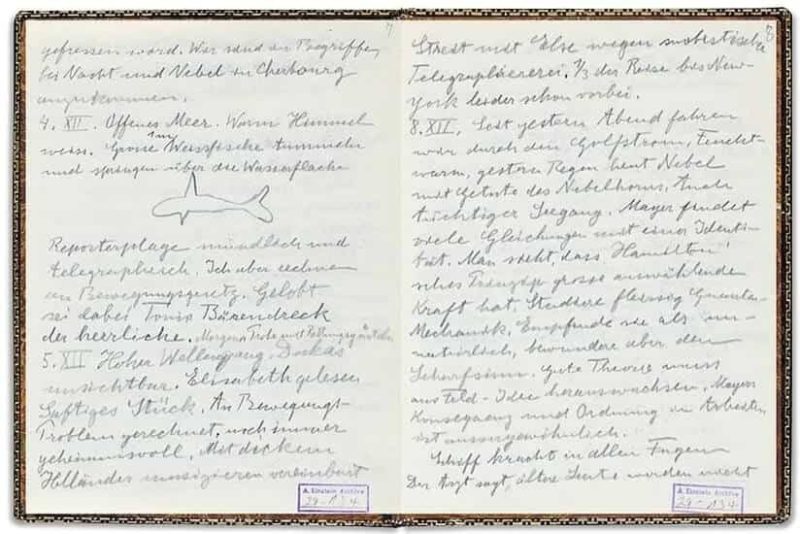 gefressen ward. Wir sind im Begriffe,
bei Nacht und Nebel in Cherbourg
anzukommen.
4. XII. Offenes Meer. Warm Himmel
weiss. Grosse Weissfische tummeln
und springen über die Wasserfläche
Reporterplage mündlich und
telegraphisch. Ich aber rechnen
an Bewegungsgesetz. Gelobt
sei dabei Tonio Bärendreck
der herrliche. Morgens Trabe mit
5. XII Hoher Wellengang. Dukas
unsichtbar. Elisabeth gelesen
Saftiges Stück. An Bewegungs-
Problem gerechnet, noch immer
geheimnisvoll. Mit dickem
Holländer musizieren vereinbart
A. Einstein Archive
29-134
8
Streit mit Else wegen
Telegraphiererei. 1/3 der Reise bis New-
York leider schon vorbei.
8. XII. Seit gestern Abend fahren
wir durch den Golfstrom, Feucht-
warm, gestern Regen heut Nebel
mit Getute des Nebelhorns. Auch
tüchtiger Seegang. Mayer findet
viele Gleichungen mit einer Identi-
tät. Man sieht, dass Hamilton'
sches Prinzip grosse auswählende
Kraft hat. Studiere fleissig Quanten-
Mechanik. Empfinde sie als un-
natürlich, bewundere aber den
Scharfsinn. Gute Theorie muss
aus Feld-Idee herauswachsen. Mayers
Konsequenz und Ordnung im Arbeiten
ist aussergewöhnlich.
Schiff kracht in allen Fugen
Der Arzt sagt, ältere Leute werden nicht
A. Einstein Archive
29-134